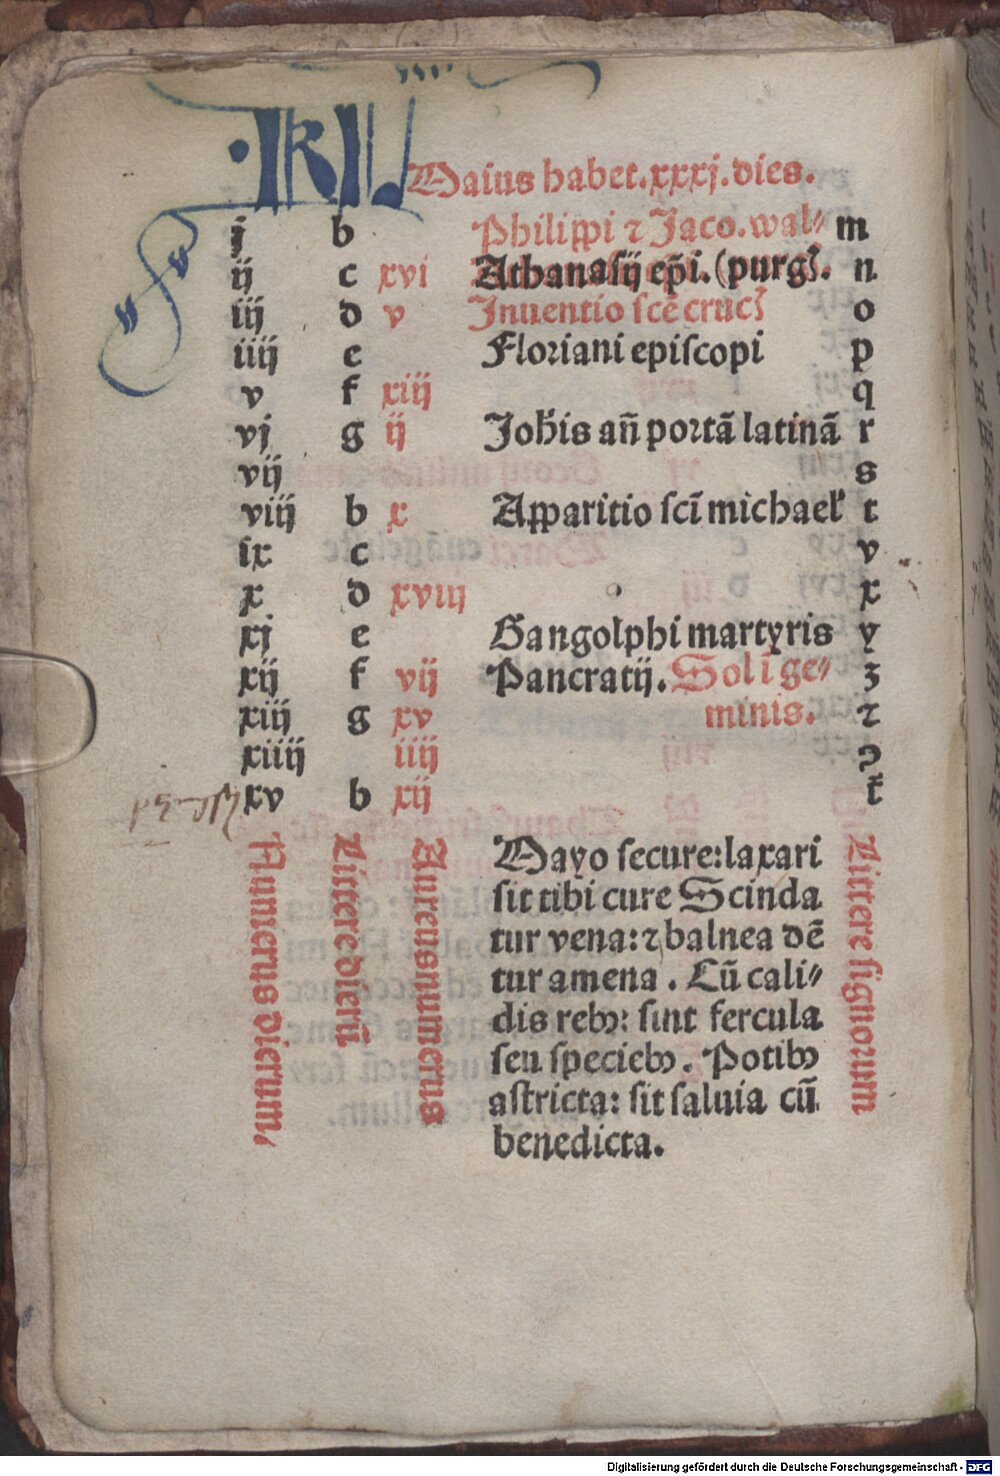 ·kl
Maius habet.xxxj.dies.
j b Philippi ⁊ Jaco.wal⸗ m
ij c xvi Athanasij ep̄i. (purgꝭ. n
iij d v Inuentio scē crucꝭ o
iiij e Floriani episcopi p
v f xiij q
vj g ij Joh̄is an̄ portā latinā r
vij s
viij b x Apparitio scī michael' t
ix c v
x d xviij x
xj e Gangolphi martyris y
xij f vij Pancratij. Sol ī ge⸗ z
xiij g xv minis. ⁊
xiiij iiij ꝯ
xv b xij t̄
Numerus dierum,
Littere dierū
Aureusnumerus
Mayo secure:laxari
sit tibi cure Scinda
tur vena:⁊ balnea dē
tur amena . Cū cali⸗
dis rebꝰ: sint fercula
seu speciebꝰ. Potibꝰ
astricta: sit saluia cū
benedicta.
Littere signorum
Digitalisierung gefördert durch die Deutsche Forschungsgemeinschaft - DFG